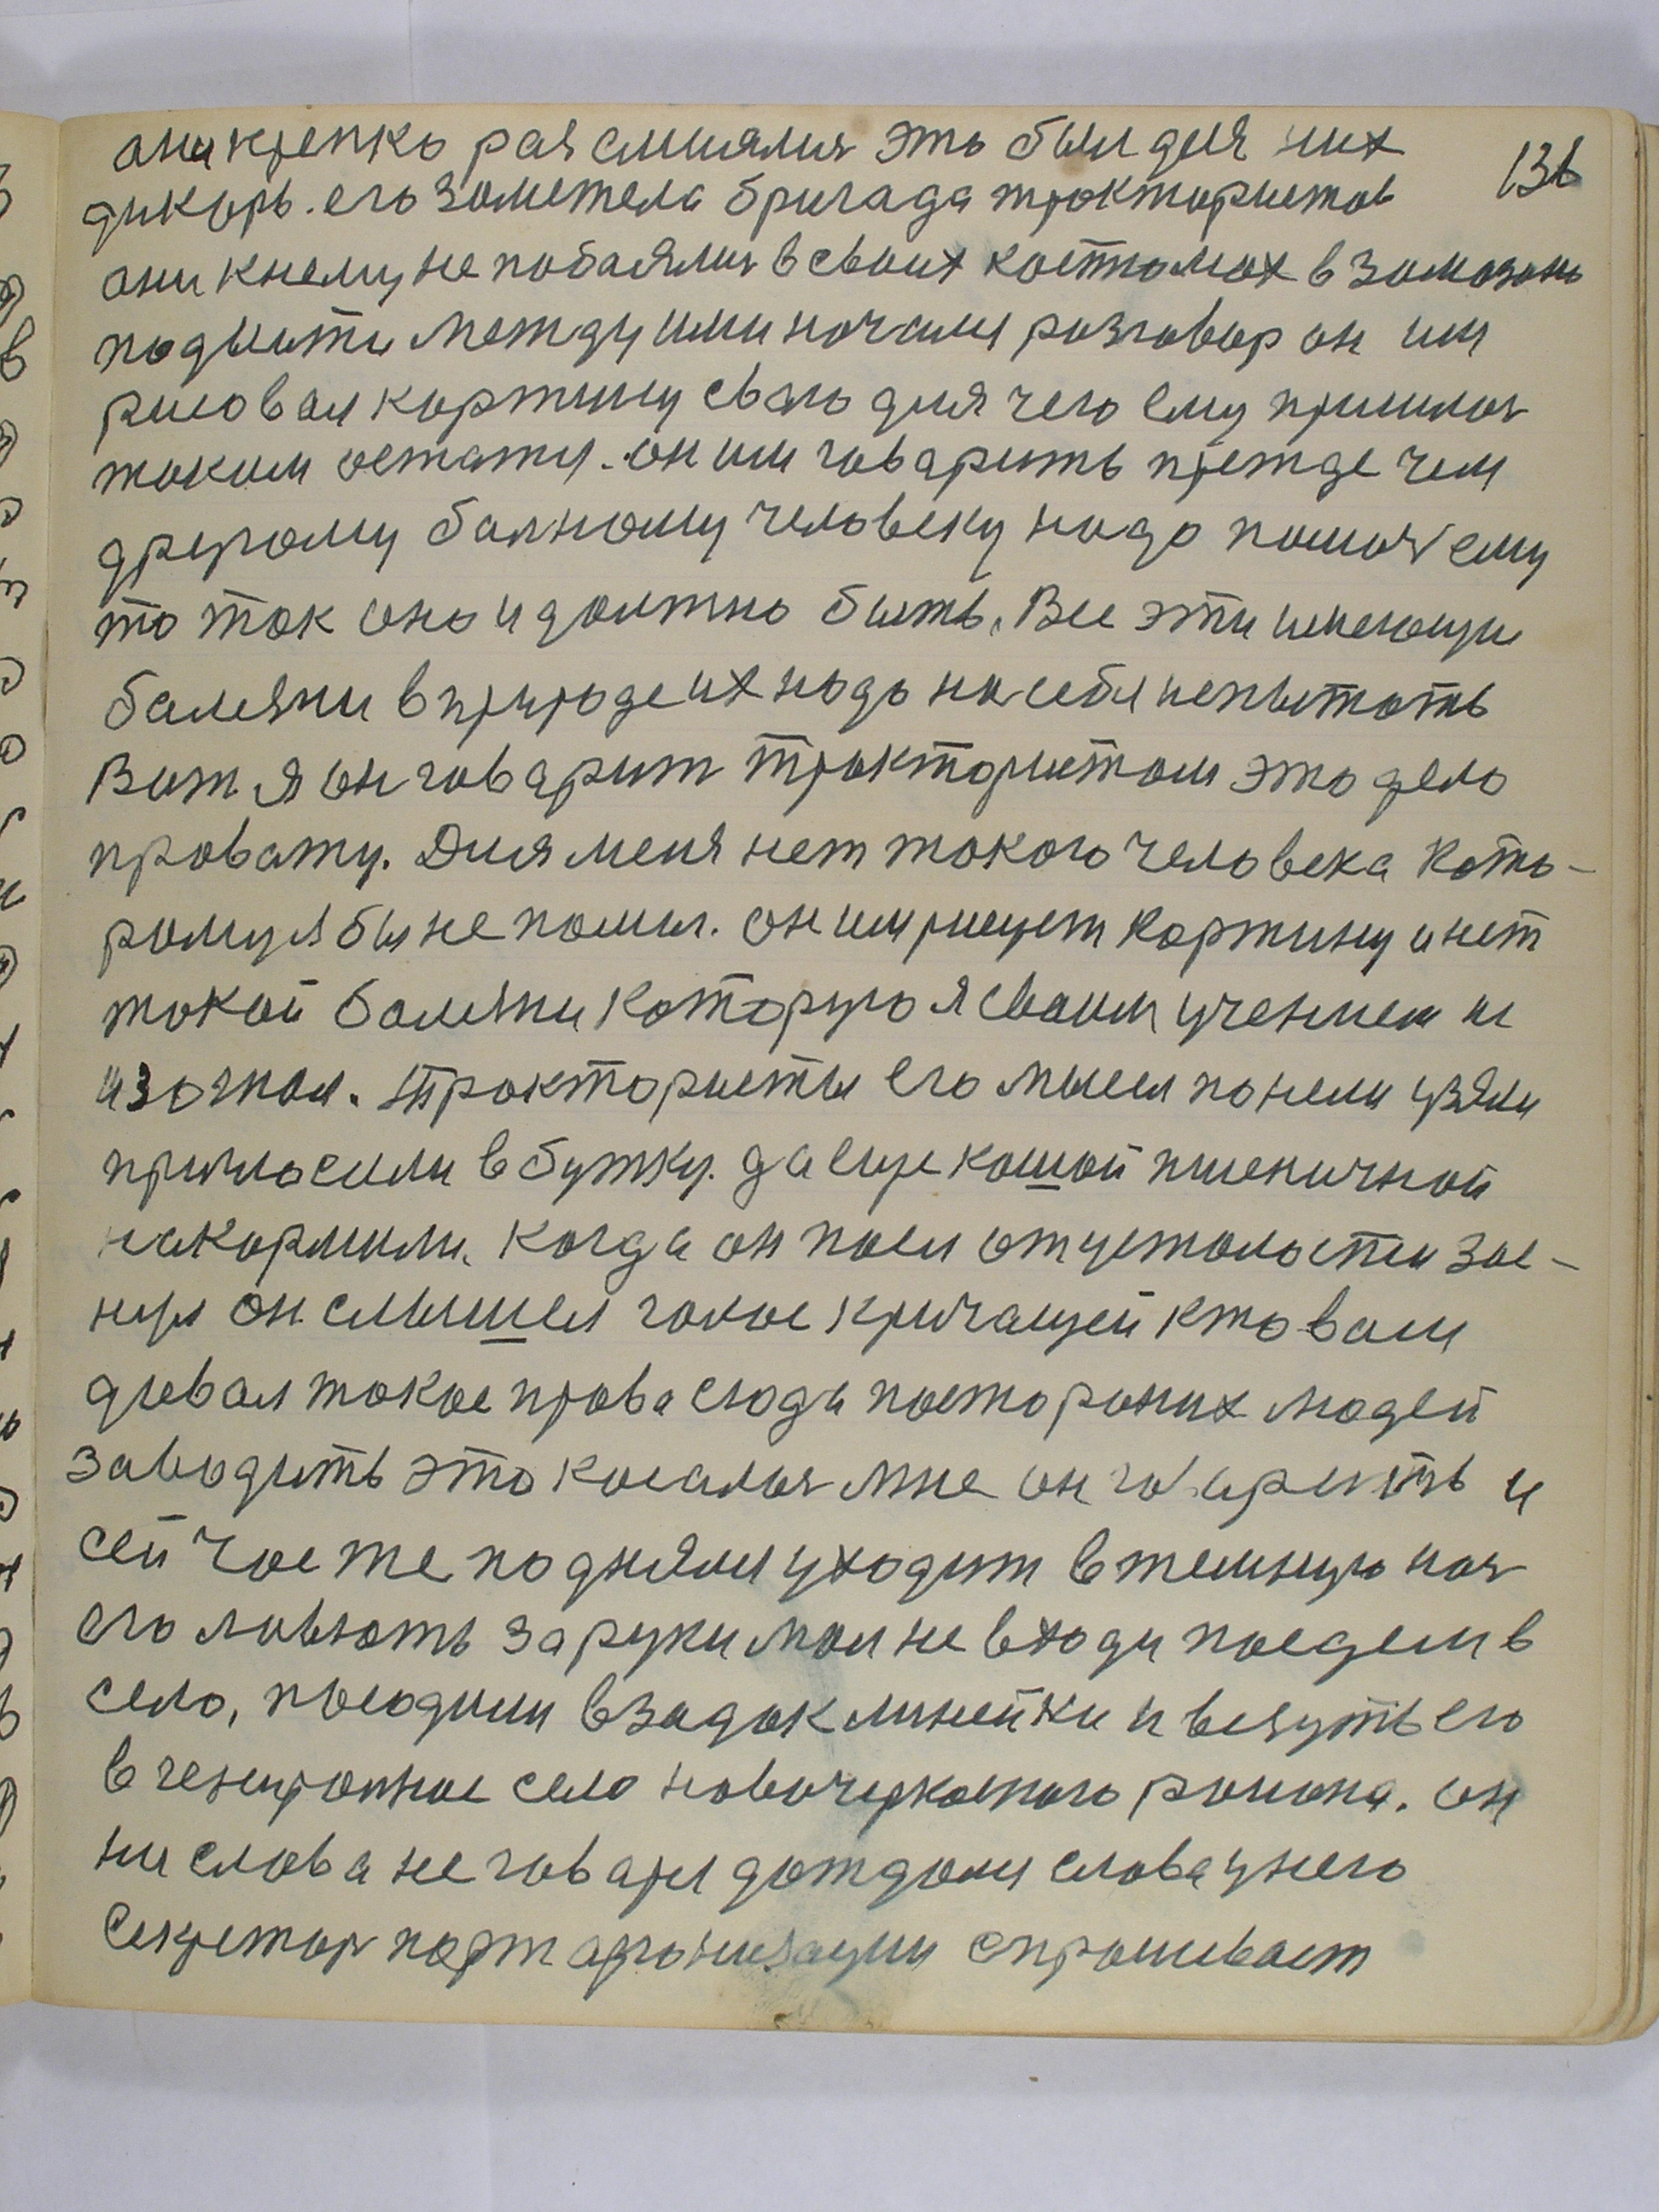 ани крепко рая смиялия это был для них
дикарь. его заметела бригада троктористов 136
ани кнему не побаялия в своих костюмах в замазань
подыити между ими начался разговор он им
рисовал картину свою для чего ему пришлоя
таким остатя. он им говарить прежде чем
другому балному человеку надо помоч ему
то так оно и должно быть. Все эти имеющи
балезни в природе их надо на себя испытать
Вот я он говарит тракторитом это дело
проважу. Для меня нет такого человека кото-
рому я бы не помог. он им рисует картину и нет
такой балезни которую я своим учением ни
изогнал. Трактористы его мысл понели узяли
пригласили в бутку. да еще кашой пшеничной
накормили. когда он поел отусталости зас-
нул он слышел голос кричащей кто вам
девал такое права сюда постороних людей
заводить это косалоя мне он говарить и
сейчас же поднялся уходит в темную ноч
его ловлють за руки мол не входи поедем в
село, посодили взадок линейки и везуть его
в централное село новочеркасткого раиона. он
ни слова не говаря дождался слова у него
Секретарь парт аргонизации спрашевает